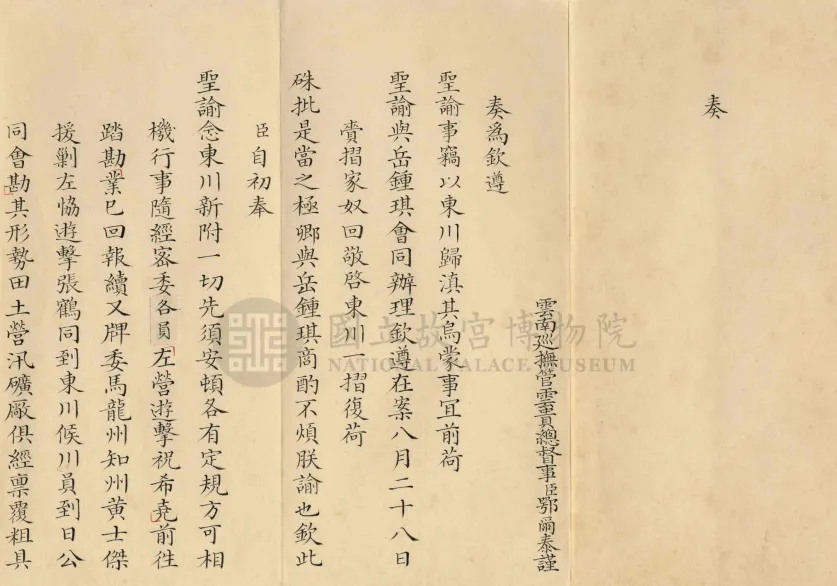 奏
雲南巡撫管雲貴總督事臣鄂爾泰謹
奏為欽遵
聖諭事竊以東川歸滇其烏蒙事宜前荷
聖諭與岳鍾琪會同辦理欽遵在案八月二十八日
賫摺家奴回敬啓東川一摺復荷
硃批是當之極卿與岳鍾琪商酌不煩朕諭也欽此
臣自初奉
聖諭念東川新附一切先須安頓各有定規方可相
機行事隨經密委各員左營遊擊祝希堯前往
踏勘業已回報續又牌委馬龍州知州黄士傑
援剿左恊遊擊張鶴同到東川候川員到日公
同會勘其形勢田土營汛礦厰俱經稟覆粗具
國立故宮博物院
NATIONAL PALACE MUSEUM